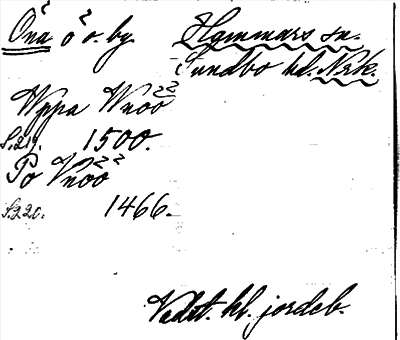 Önå ö o. by. Hammars sn.
Sundbo hd. Nrk.
Uppa Vnöö
S. 219. 1500.
Po Vnöö
S. 220. 1466.
Vadst. kl. jordeb.